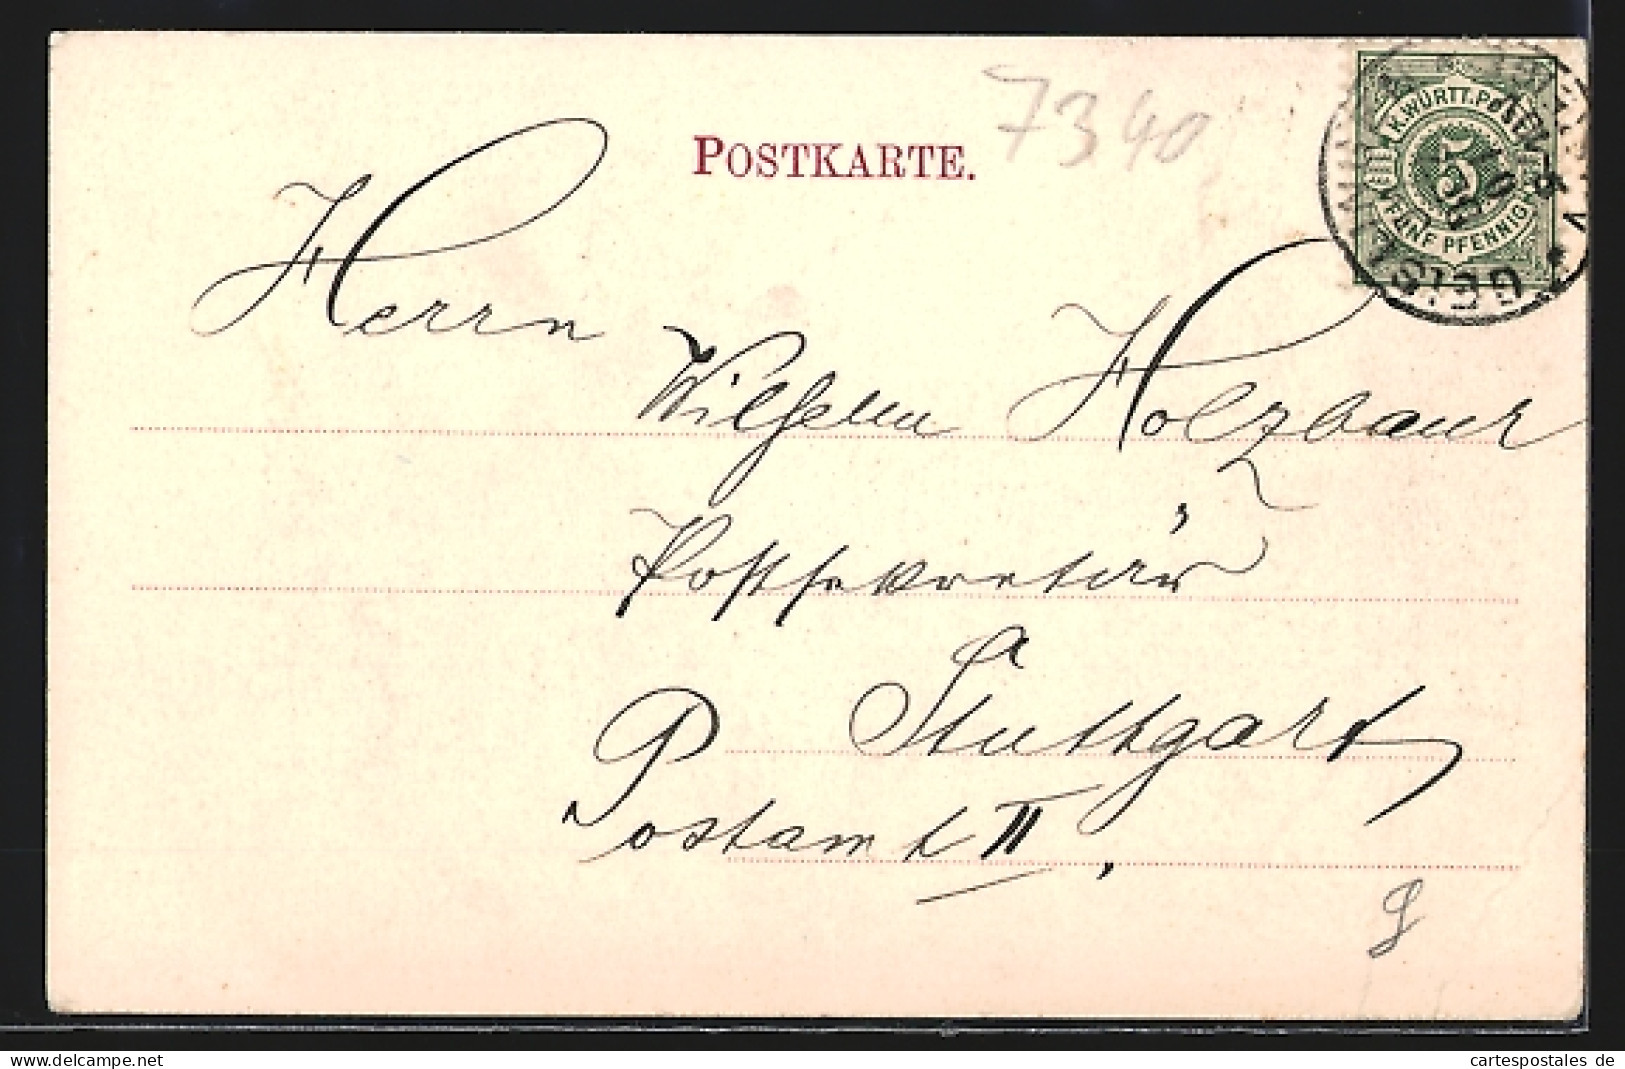 POSTKARTE.
7340
K. WÜRTT. POST
5
FÜNF PFENNIG
GEISL
Herrn
Wilhelm Holzbaur
Postsekretär
Stuttgart
Postamt II,
www.ansichtskartenversand.com
cartespostales de